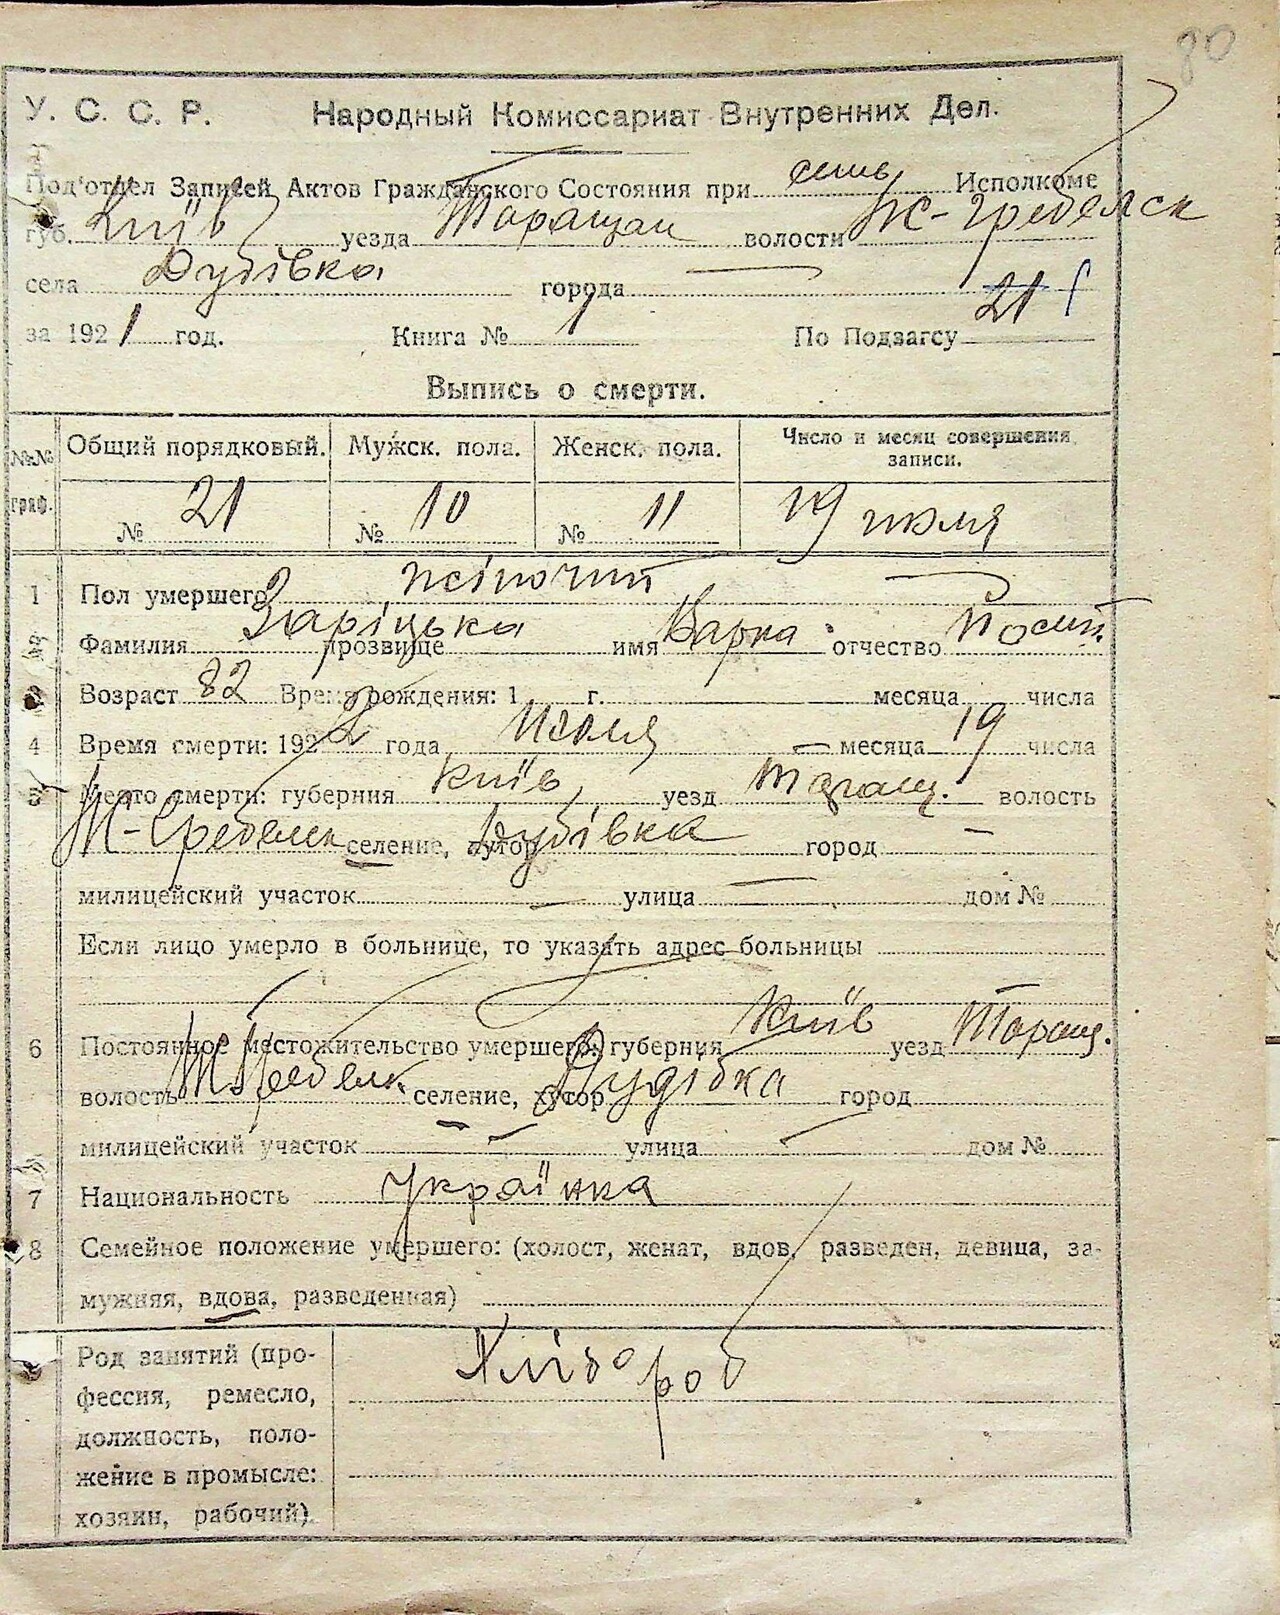 80
У. С. С. Р. Народный Комиссариат Внутренних Дел.
Под'отдел Записей Актов Гражданского Состояния при Исполкоме
губ. Київ уезда Таращан волости Ж-Гребелск
села Дубівка города
за 1921 год. Книга № 1 По Подзагсу 21
Выпись о смерти.
№№ граф. Общий порядковый. Мужск. пола. Женск. пола. Число и месяц совершения записи.
№ 21 № 10 № 11 19 июля
1 Пол умершего жіночий
Фамилия Заріцька прозвище имя Варка отчество Йосип.
Возраст 82 Время рождения: 1 г. месяца числа
4 Время смерти: 192 года Июля месяца 19 числа
5 Место смерти: губерния Київ уезд Таращ. волость
Ж-Гребелск селение, хутор Дубівка город
милицейский участок улица дом №
Если лицо умерло в больнице, то указать адрес больницы
6 Постоянное местожительство умершего: губерния Київ уезд Таращ.
волость Ж Гребелк селение, хутор Дудівка город
милицейский участок улица дом №
7 Национальность українка
8 Семейное положение умершего: (холост, женат, вдов, разведен, девица, за-
мужняя, вдова, разведенная)
Род занятий (про- Хлібороб
фессия, ремесло,
должность, поло-
жение в промысле:
хозяин, рабочий).